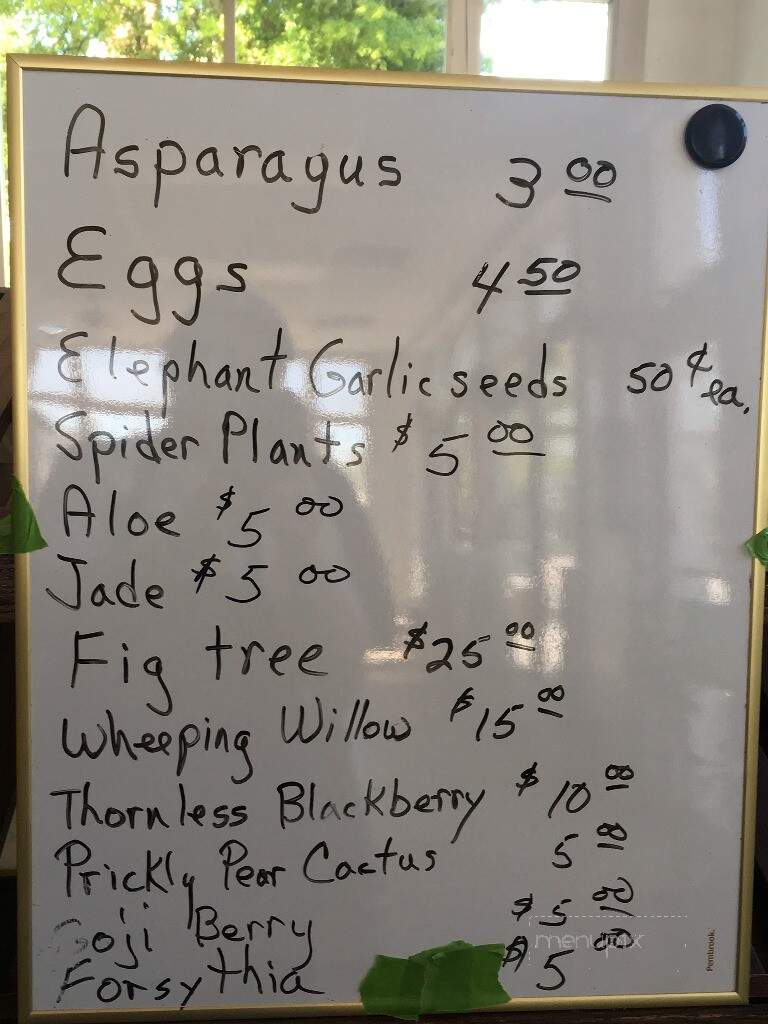 Asparagus 3 00
Eggs 4 50
Elephant Garlic seeds 50 ¢ ea.
Spider Plants $ 5 00
Aloe $ 5 00
Jade $ 5 00
Fig tree $25 00
Wheeping Willow $15 00
Thornless Blackberry $ 10 00
Prickly Pear Cactus 5 00
Goji Berry $ 5 00
Forsythia $ 5 00
menupix
Pembrook.